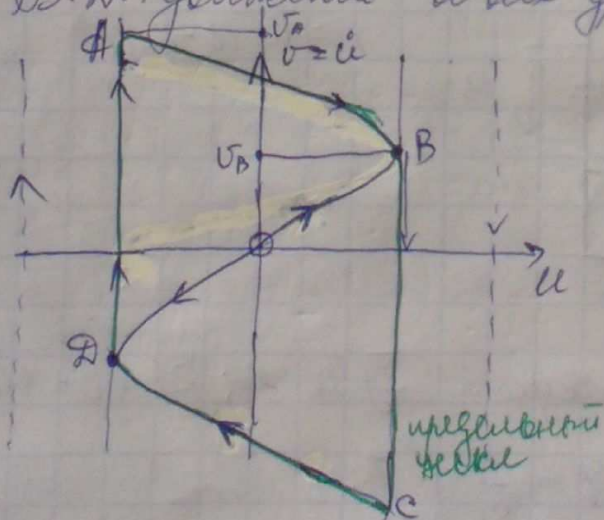 A
v_A
v = u̇
v_B
B
u
D
предельный
цикл
C